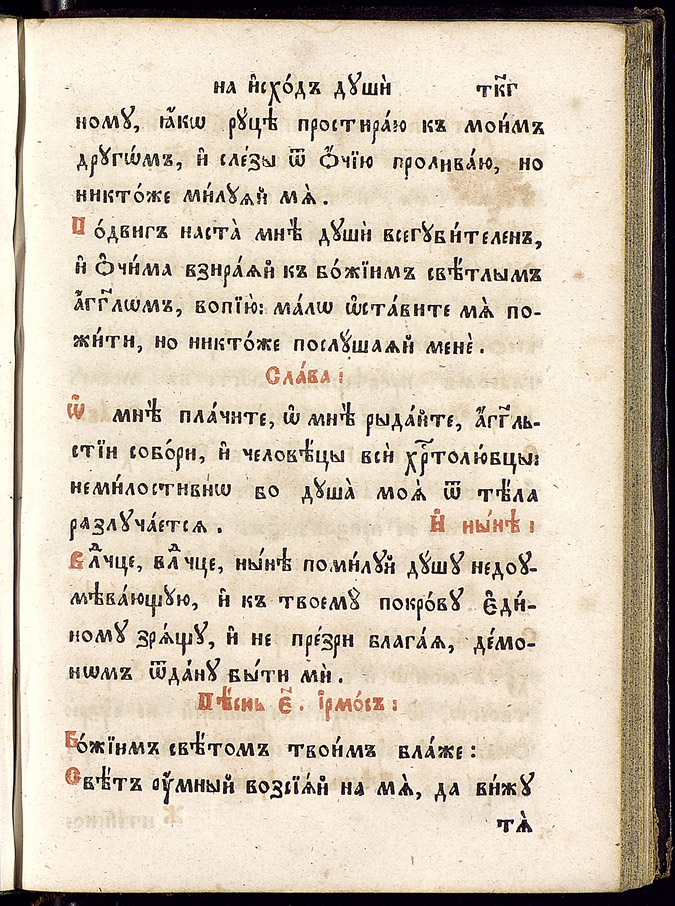 на и҆схо́дъ дꙋшѝ тк҃г
номꙋ, ꙗ҆́кѡ рꙋцѣ̀ простира́ю къ мои̑мъ
дрꙋгѡ́мъ, и҆ сле́зы ѿ ѻ҆́чїю пролива́ю, но
никто́же ми́лꙋѧй мѧ̀.
По́двигъ наста̀ мнѣ̀ дꙋшѝ всегꙋби́телен,
и҆ ѻ҆чи́ма взира́ѧй къ бо́жїимъ свѣ̑тлымъ
а҆́гг҃лѡмъ, вопїю̀: ма́лѡ ѡ҆ста́вите мѧ̀ по-
жи́ти, но никто́же послꙋ́шаѧй менѐ.
Сла́ва:
Ѽ мнѣ̀ пла́чите, ѽ мнѣ̀ рыда́йте, а҆́гг҃ль-
стїи собо́ри, и҆ человѣ́цы всѝ хрⷭ҇толю́бцы:
неми́лостивнѡ бо дꙋша̀ моѧ̀ ѿ тѣ́ла
разлꙋча́етсѧ. И҆ ны́нѣ:
Влⷣчце, влⷣчце, ны́нѣ поми́лꙋй дꙋ́шꙋ недоꙋ-
мѣва́ющꙋю, и҆ къ твоемꙋ̀ покро́вꙋ є҆ди́-
номꙋ зрѧ́щꙋ, и҆ не пре́зри блага́ѧ, де́мо-
нѡмъ ѿда́нꙋ бы́ти мѝ.
Пѣ́снь є҃. і҆рмо́съ:
Бо́жїимъ свѣ́томъ твои́мъ бла́же:
Свѣ́тъ ᲂу҆́мный возсїѧ́й на мѧ̀, да ви́жꙋ
тѧ̀